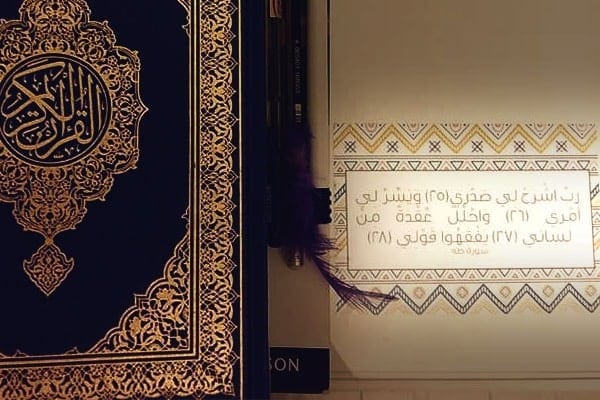 القرآن الكريم
ربّ اشْرَحْ لي صَدْري(٢٥) وَيَسِّرْ لي
أمْري (٢٦) واحْلُلْ عُقْدَةً منْ
لساني (٢٧) يفْقَهُوا قَوْلي (٢٨)
سورة طه
SON